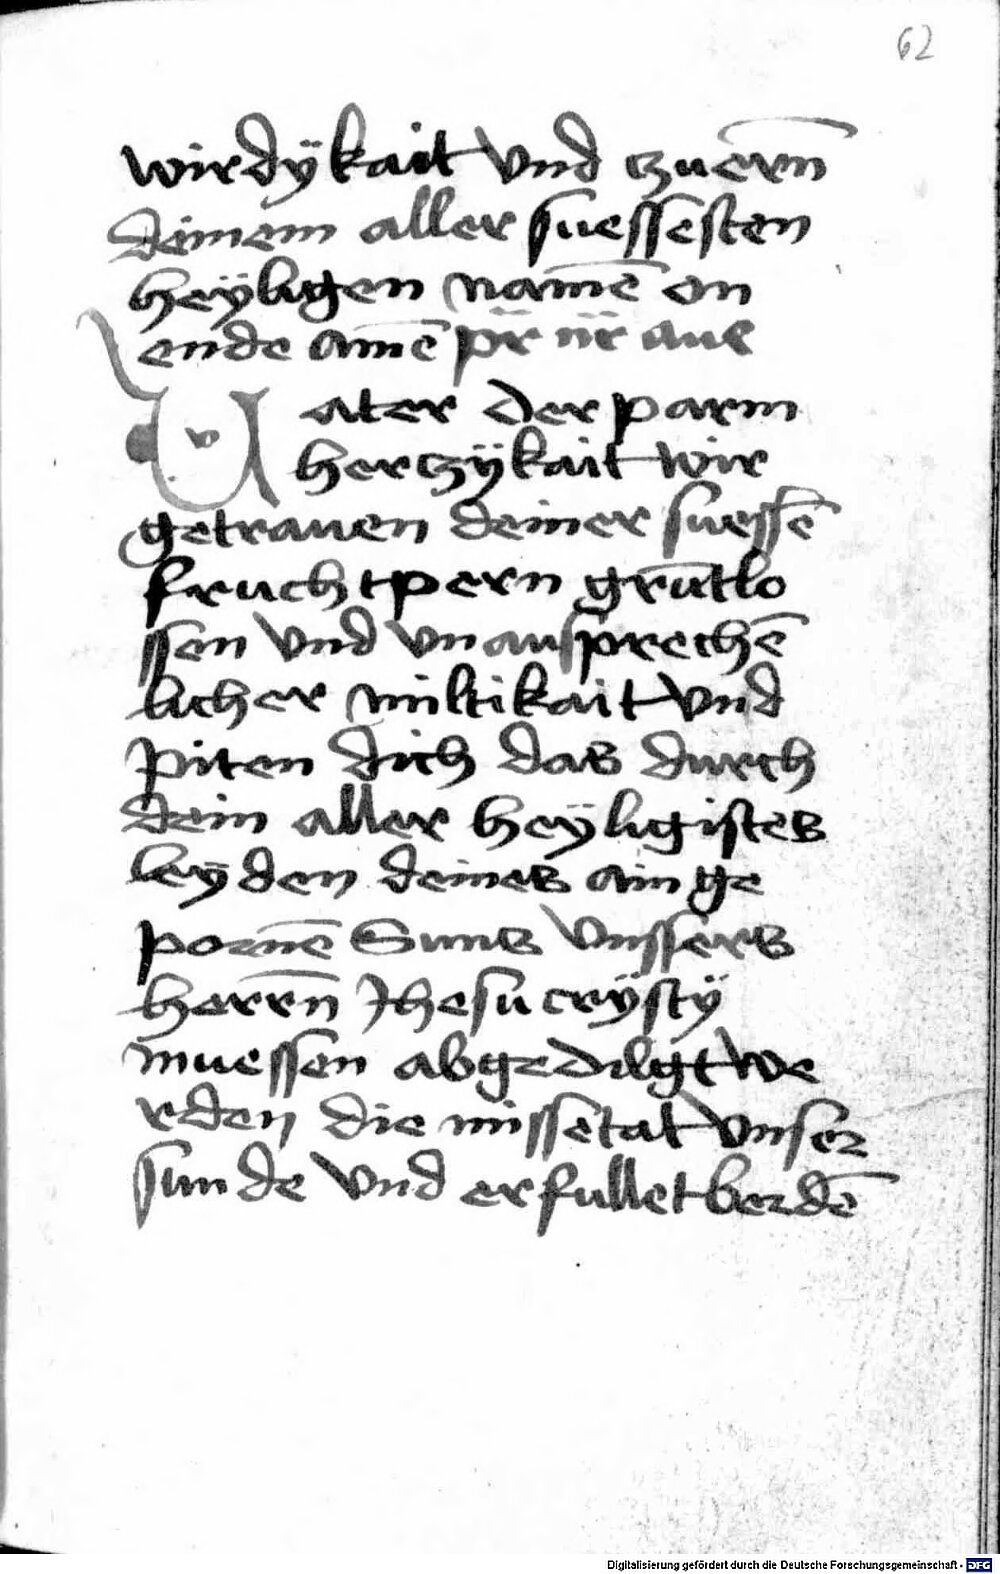 62
wirdÿkait vnd tzu ern̄
deinem aller suessesten
heÿligen namē on
ende amē pr̄ nr̄ aue
Vater der parm
hertzÿkait wir
getrauen deiner suessē
fruchtpern grūtlo
ssen vnd vnausprechē
licher miltikait vnd
piten dich das durch
dein aller heÿligistes
leÿden deines ainge
pornē Suns vnssers
herrn̄ Jhesu crÿstÿ
muessen abgedilgt we
rden die missetat vnser
sunde vnd erfullet berdē
Digitalisierung gefördert durch die Deutsche Forschungsgemeinschaft - DFG